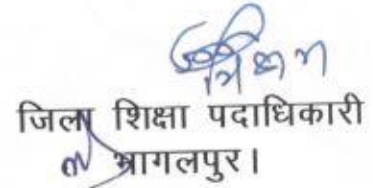 जिला शिक्षा पदाधिकारी
भागलपुर।